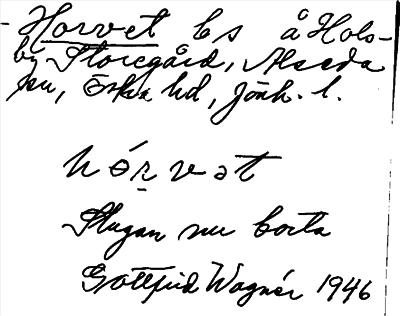 Horvet bs å Hols-
by Storegård, Alseda
sn, Östra hd, Jönk. l.
hórvət
Stugan nu borta
Gottfrid Wagnér 1946